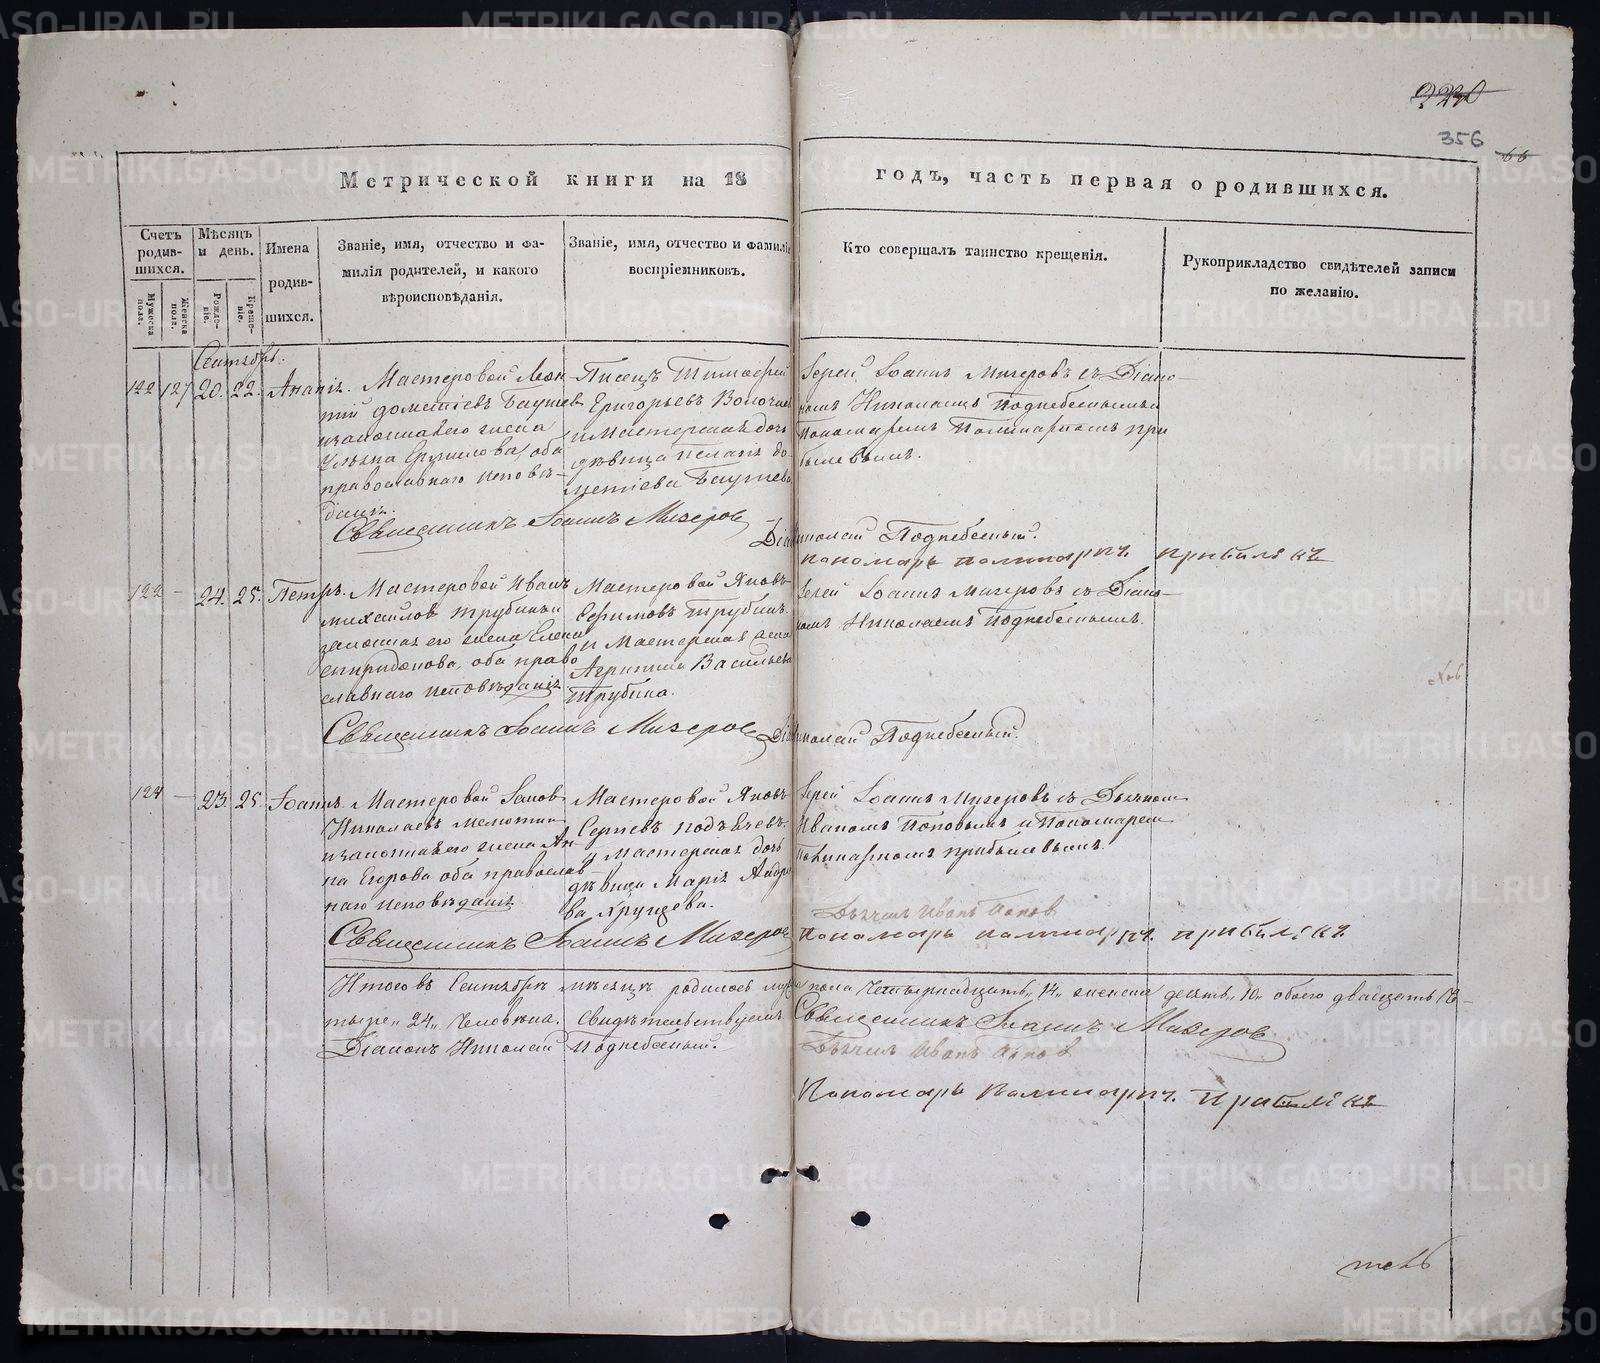 330
356
66
Метрической книги на 18
годъ, часть первая о родившихся.
Счетъ родившихся.
Мужеска пола.
Женска пола.
Мѣсяцъ и день.
Рожденіе.
Крещеніе.
Имена родившихся.
Званіе, имя, отчество и фамилія родителей, и какого вѣроисповѣданія.
Званіе, имя, отчество и фамилія воспріемниковъ.
Кто совершалъ таинство крещенія.
Рукоприкладство свидѣтелей записи по желанію.
Сентябрь.
122 127 20. 22.
Мастеровой Леон-
тій Дометіевъ
и законная его жена
Ульяна Ермилова, оба
православнаго исповѣ-
данія.
Писецъ Тимофей
Григорьевъ
и Мастерская дочь
дѣвица Пелагія До-
метіева
Іерей Іоаннъ Мизеровъ съ Діако-
номъ Николаемъ Поднебеснымъ и
Пономаремъ Поликарпомъ При-
былевымъ.
Священникъ Іоаннъ Мизеровъ
Діаконъ Николай Поднебесный.
Пономарь Поликарпъ Прибылевъ
24. 25. Петръ.
Мастеровой Иванъ
Михайловъ Трубинъ и
законная его жена Елена
Спиридонова, оба право-
славнаго исповѣданія
Мастеровой Яковъ
Ефимовъ Трубинъ.
и Мастерская жена
Агрипина Васильева
Трубина.
Іерей Іоаннъ Мизеровъ съ Діако-
номъ Николаемъ Поднебеснымъ.
Священникъ Іоаннъ Мизеровъ
Діаконъ Николай Поднебесный.
124 23. 25 Іоаннъ.
Мастеровой
Николаевъ
и законная его жена Ан-
на Егорова оба православ-
наго исповѣданія
Мастеровой Яковъ
Сергіевъ
и Мастерская дочь
дѣвица Марія
Хрущева.
Іерей Іоаннъ Мизеровъ съ Дьячкомъ
Иваномъ Поповымъ и Пономаремъ
Поликарпомъ Прибылевымъ.
Дьячекъ Иванъ Попов
Священникъ Іоаннъ Мизеровъ
Пономарь Поликарпъ Прибылевъ
Итого въ Сентябрѣ мѣсяцѣ родилось муж. пола Четырнадцать „14„ женска десять „10„ обоего двадцать че-
тыре „24„ Человѣка. Свидѣтельствуемъ Священникъ Іоаннъ Мизеров
Діаконъ Николай Поднебесный. Дьячекъ Иванъ Попов
Пономарь Поликарпъ Прибылевъ